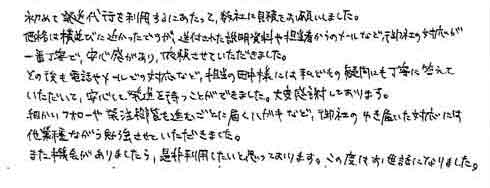 初めて発送代行を利用するにあたって、数社に見積をお願いしました。
価格は横並びに近かったのですが、送付された説明資料や担当者からのメールなど、御社の対応が
一番丁寧で、安心感があり、依頼させていただきました。
その後も電話やメールでの対応など、担当の田中様には私どもの疑問にも丁寧に答えて
いただいて、安心して発送を待つことができました。大変感謝しております。
細かいフォローや発送 を進むごとに届くハガキなど、御社の行き届いた対応には
他業種ながら勉強させていただきました。
また機会がありましたら、是非利用したいと思っております。この度はお世話になりました。